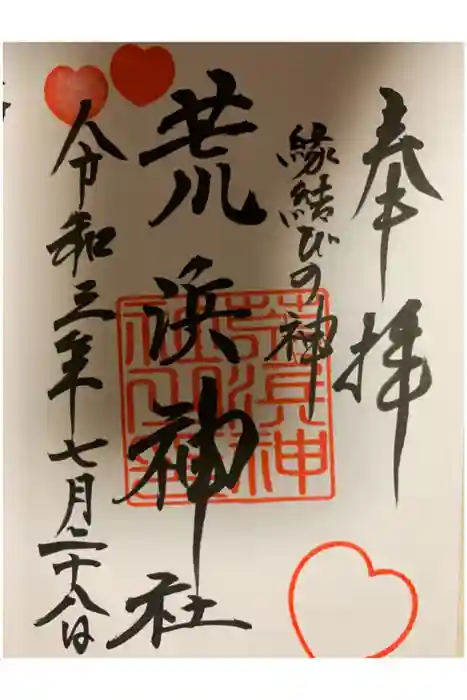 奉拝
縁結びの神
荒浜神社
荒浜神
社
令和三年七月二十八日